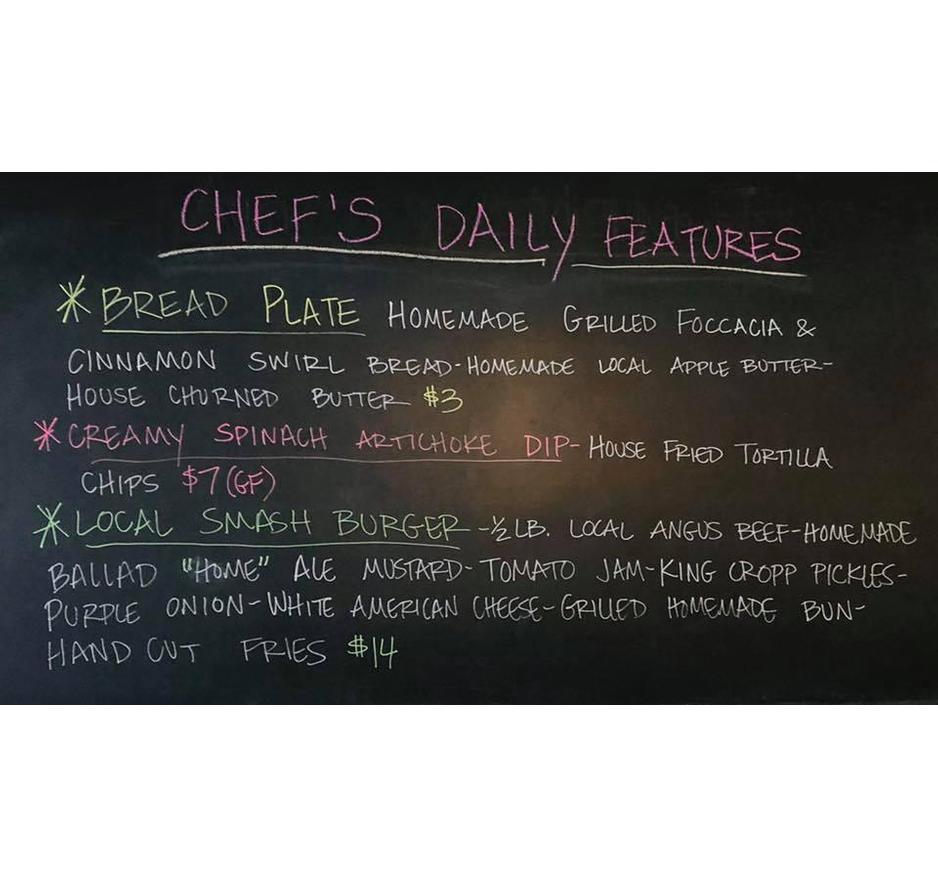 CHEF'S DAILY FEATURES
* BREAD PLATE HOMEMADE GRILLED FOCCACIA &
CINNAMON SWIRL BREAD-HOMEMADE LOCAL APPLE BUTTER-
HOUSE CHURNED BUTTER $3
* CREAMY SPINACH ARTICHOKE DIP- HOUSE FRIED TORTILLA
CHIPS $7 (GF)
* LOCAL SMASH BURGER -½ LB. LOCAL ANGUS BEEF-HOMEMADE
BALLAD "HOME" ALE MUSTARD-TOMATO JAM-KING CROPP PICKLES-
PURPLE ONION-WHITE AMERICAN CHEESE-GRILLED HOMEMADE BUN-
HAND CUT FRIES $14